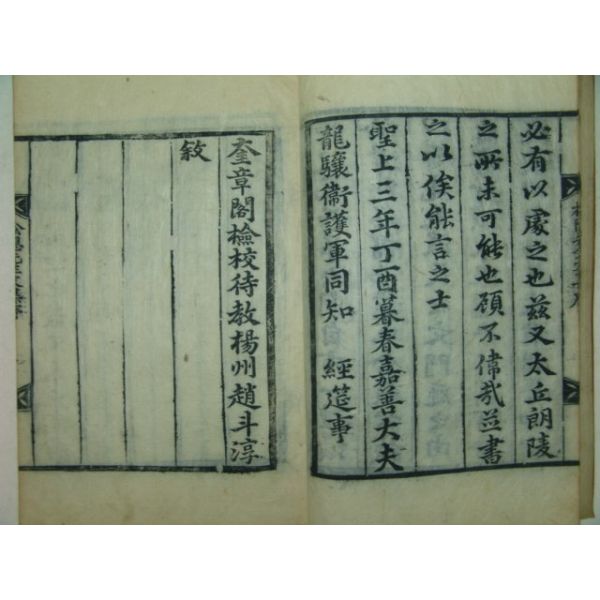 必有以處之也茲又太丘朗陵
之所未可能也顧不偉哉並書
之以俟能言之士
聖上三年丁酉暮春嘉善大夫
龍驤衛護軍同知 經筵事
奎章閣檢校待教楊州趙斗淳
敘